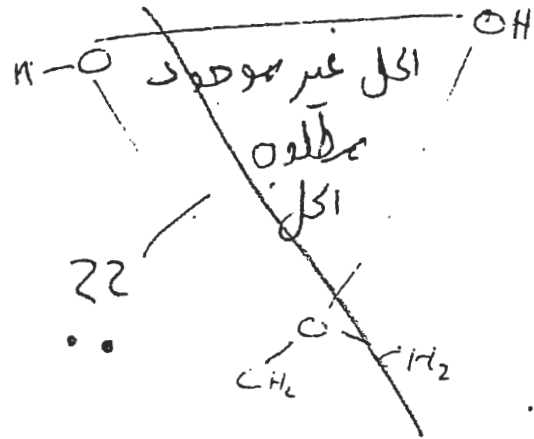 OH
H-O
الحل غير موجود
مطلوب
الحل
؟؟
O
CH₂
CH₂